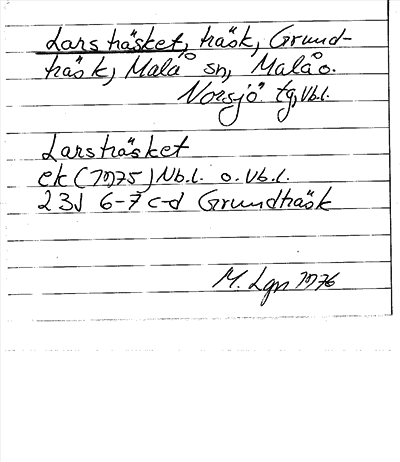 Larsträsket, träsk, Grund-
träsk, Malå sn, Malå o.
Norsjö tg, Vb.l.
Larsträsket
ek (1975) Nb.l. o. Vb.l.
23J 6-7 c-d Grundträsk
M. Lgn 1976